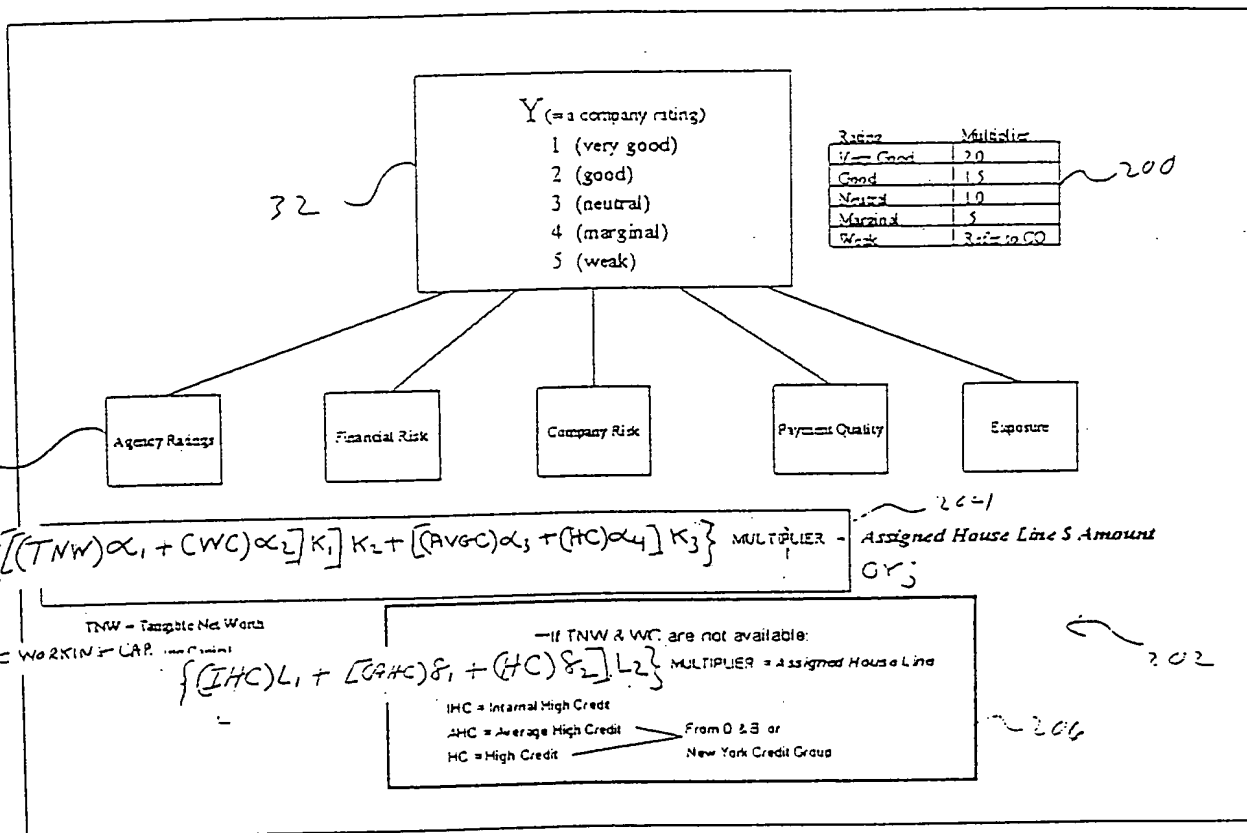 Y (= a company rating)
1 (very good)
2 (good)
3 (neutral)
4 (marginal)
5 (weak)
32
Rating Multiplier
Very Good 2.0
Good 1.5
Neutral 1.0
Marginal .5
Weak Refer to CO
200
Agency Ratings
Financial Risk
Company Risk
Payment Quality
Exposure
[(TNW)α₁ + (WC)α₂]K₁]K₂ + [(AVGC)α₃ + (HC)α₄]K₃} MULTIPLIER -
Assigned House Line $ Amount
TNW = Tangible Net Worth
= WORKING CAP.
202
—If TNW & WC are not available:
{(IHC)L₁ + [(AHC)δ₁ + (HC)δ₂]L₂} MULTIPLIER = Assigned House Line
IHC = Internal High Credit
AHC = Average High Credit
HC = High Credit
From D & B or
New York Credit Group
206